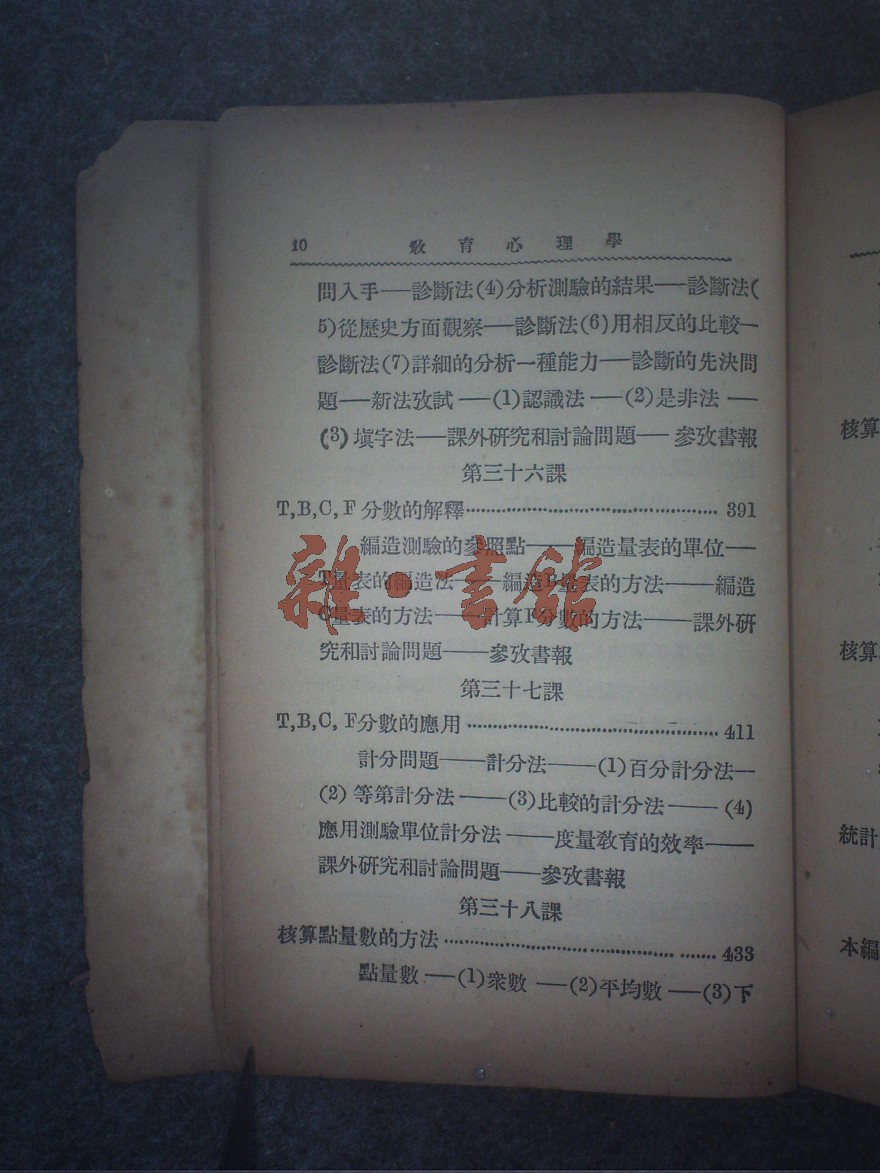 10 教育心理學
問入手——診斷法(4)分析測驗的結果——診斷法(
5)從歷史方面觀察——診斷法(6)用相反的比較—
診斷法(7)詳細的分析一種能力——診斷的先決問
題——新法攷試——(1)認識法——(2)是非法——
(3)塡字法——課外研究和討論問題——參攷書報
第三十六課
T,B,C,F分數的解釋……391
編造測驗的參照點——編造量表的單位——
T量表的編造法——編造B量表的方法——編造
C量表的方法——計算F分數的方法——課外研
究和討論問題——參攷書報
第三十七課
T,B,C,F分數的應用……411
計分問題——計分法——(1)百分計分法—
(2)等第計分法——(3)比較的計分法——(4)
應用測驗單位計分法——度量敎育的效率——
課外研究和討論問題——參攷書報
第三十八課
核算點量數的方法……433
點量數——(1)衆數——(2)平均數——(3)下
雜·書館
核算
核算
統計
本編